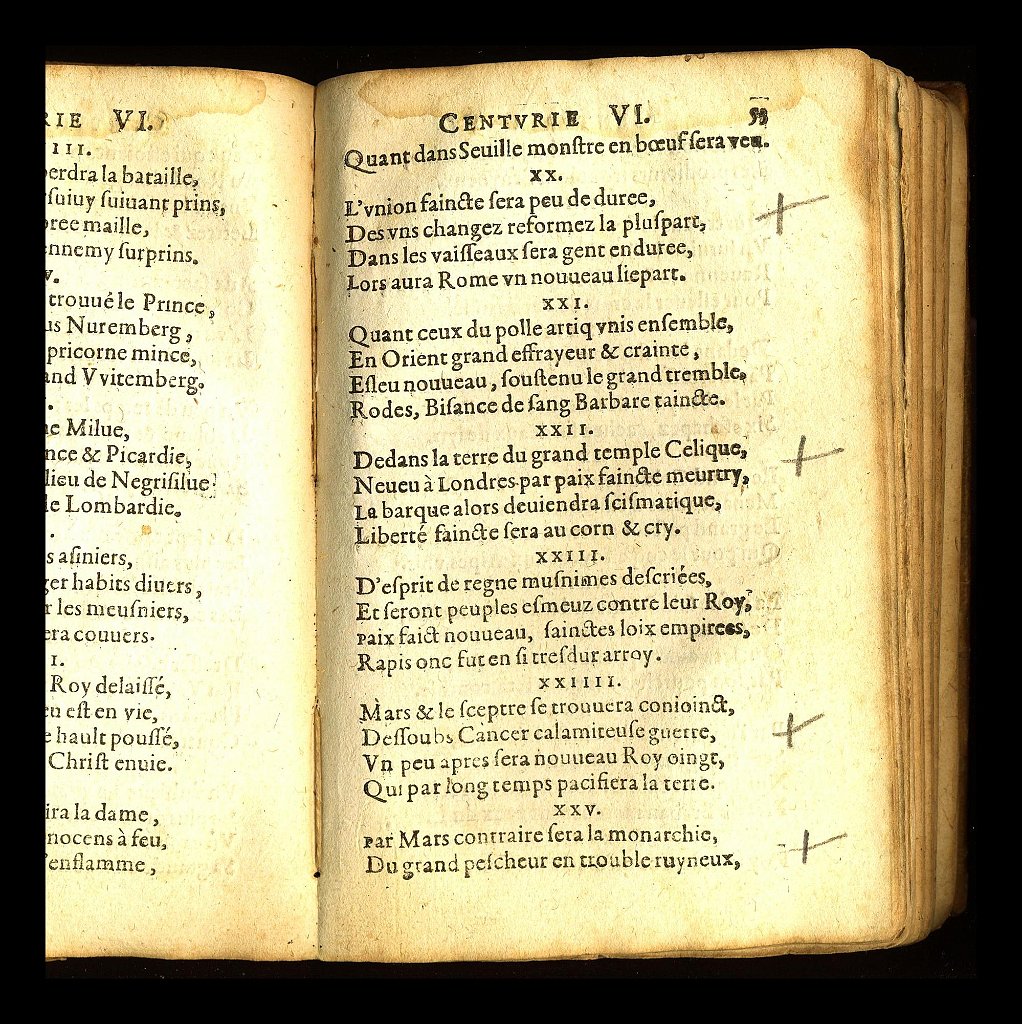 RIE VI.
III.
perdra la bataille,
ſuiuy ſuiuant prins,
oree maille,
ennemy ſurprins.
V.
trouué le Prince,
us Nuremberg,
pricorne mince,
and Vvitemberg.
.
ne Milue,
nce & Picardie,
lieu de Negriſilue:
le Lombardie.
.
s aſiniers,
ger habits diuers,
r les meuſniers,
era couuers.
I.
Roy delaiſſé,
eu eſt en vie,
e hault pouſſé,
Chriſt enuie.
ira la dame,
nocens à feu,
enflamme,
CENTVRIE VI. 53
Quant dans Seuille monſtre en bœuf ſera veu.
XX.
L'vnion faincte ſera peu de duree,
Des vns changez reformez la pluſpart,
Dans les vaiſſeaux ſera gent enduree,
Lors aura Rome vn nouueau liepart.
XXI.
Quant ceux du polle artiq vnis enſemble,
En Orient grand effrayeur & crainte,
Eſleu nouueau, ſouſtenu le grand tremble,
Rodes, Biſance de ſang Barbare taincte.
XXII.
Dedans la terre du grand temple Celique,
Neueu à Londres par paix faincte meurtry,
La barque alors deuiendra ſciſmatique,
Liberté faincte ſera au corn & cry.
XXIII.
D'eſprit de regne muſnimes deſcriées,
Et ſeront peuples eſmeuz contre leur Roy,
Paix faict nouueau, ſainctes loix empirees,
Rapis onc fut en ſi treſdur arroy.
XXIIII.
Mars & le ſceptre ſe trouuera conioinct,
Deſſoubs Cancer calamiteuſe guerre,
Vn peu apres ſera nouueau Roy oingt,
Qui par long temps pacifiera la terre.
XXV.
Par Mars contraire ſera la monarchie,
Du grand peſcheur en trouble ruyneux,